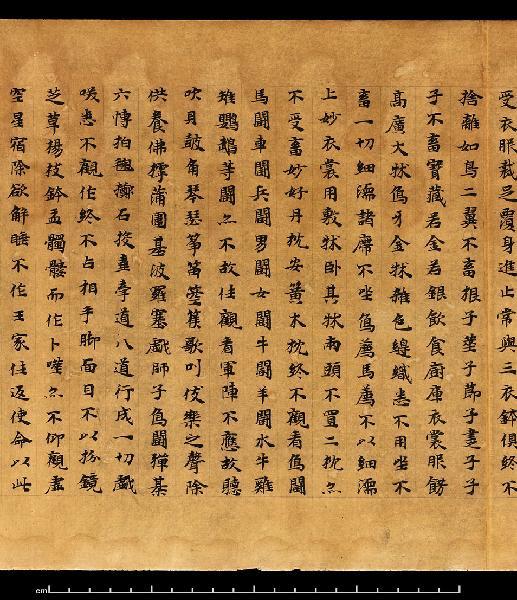 受衣服裁足覆身進止常與三衣鉢俱終不
捨離如鳥二翼不畜根子莖子莭子子子
子不畜寶藏若金若銀飲食廚庫衣裳服飾
高廣大牀象牙金牀雜色綖織悉不用坐不
畜一切細濡諸席不坐象薦馬薦不以細濡
上妙衣裳用敷牀卧其牀兩頭不置二枕亦
不受畜妙好丹枕安黃木枕終不觀看象鬪
馬鬪車鬪兵鬪男鬪女鬪牛鬪羊鬪水牛雞
雉鸚鵡等鬪亦不故往觀看軍陣不應故聽
吹貝鼓角琴瑟箏笛箜篌歌叫伎樂之聲除
供養佛摴蒲圍基波羅塞戲師子象鬪彈碁
六博拍毱擲石投壺牽道八道行成一切戲
咲悉不觀作終不占相手脚面目不以抓鏡
芝草楊枝鉢盂髑髏而作卜筮亦不仰觀虛
空星宿除欲解睡不作王家往返使命以此
cm